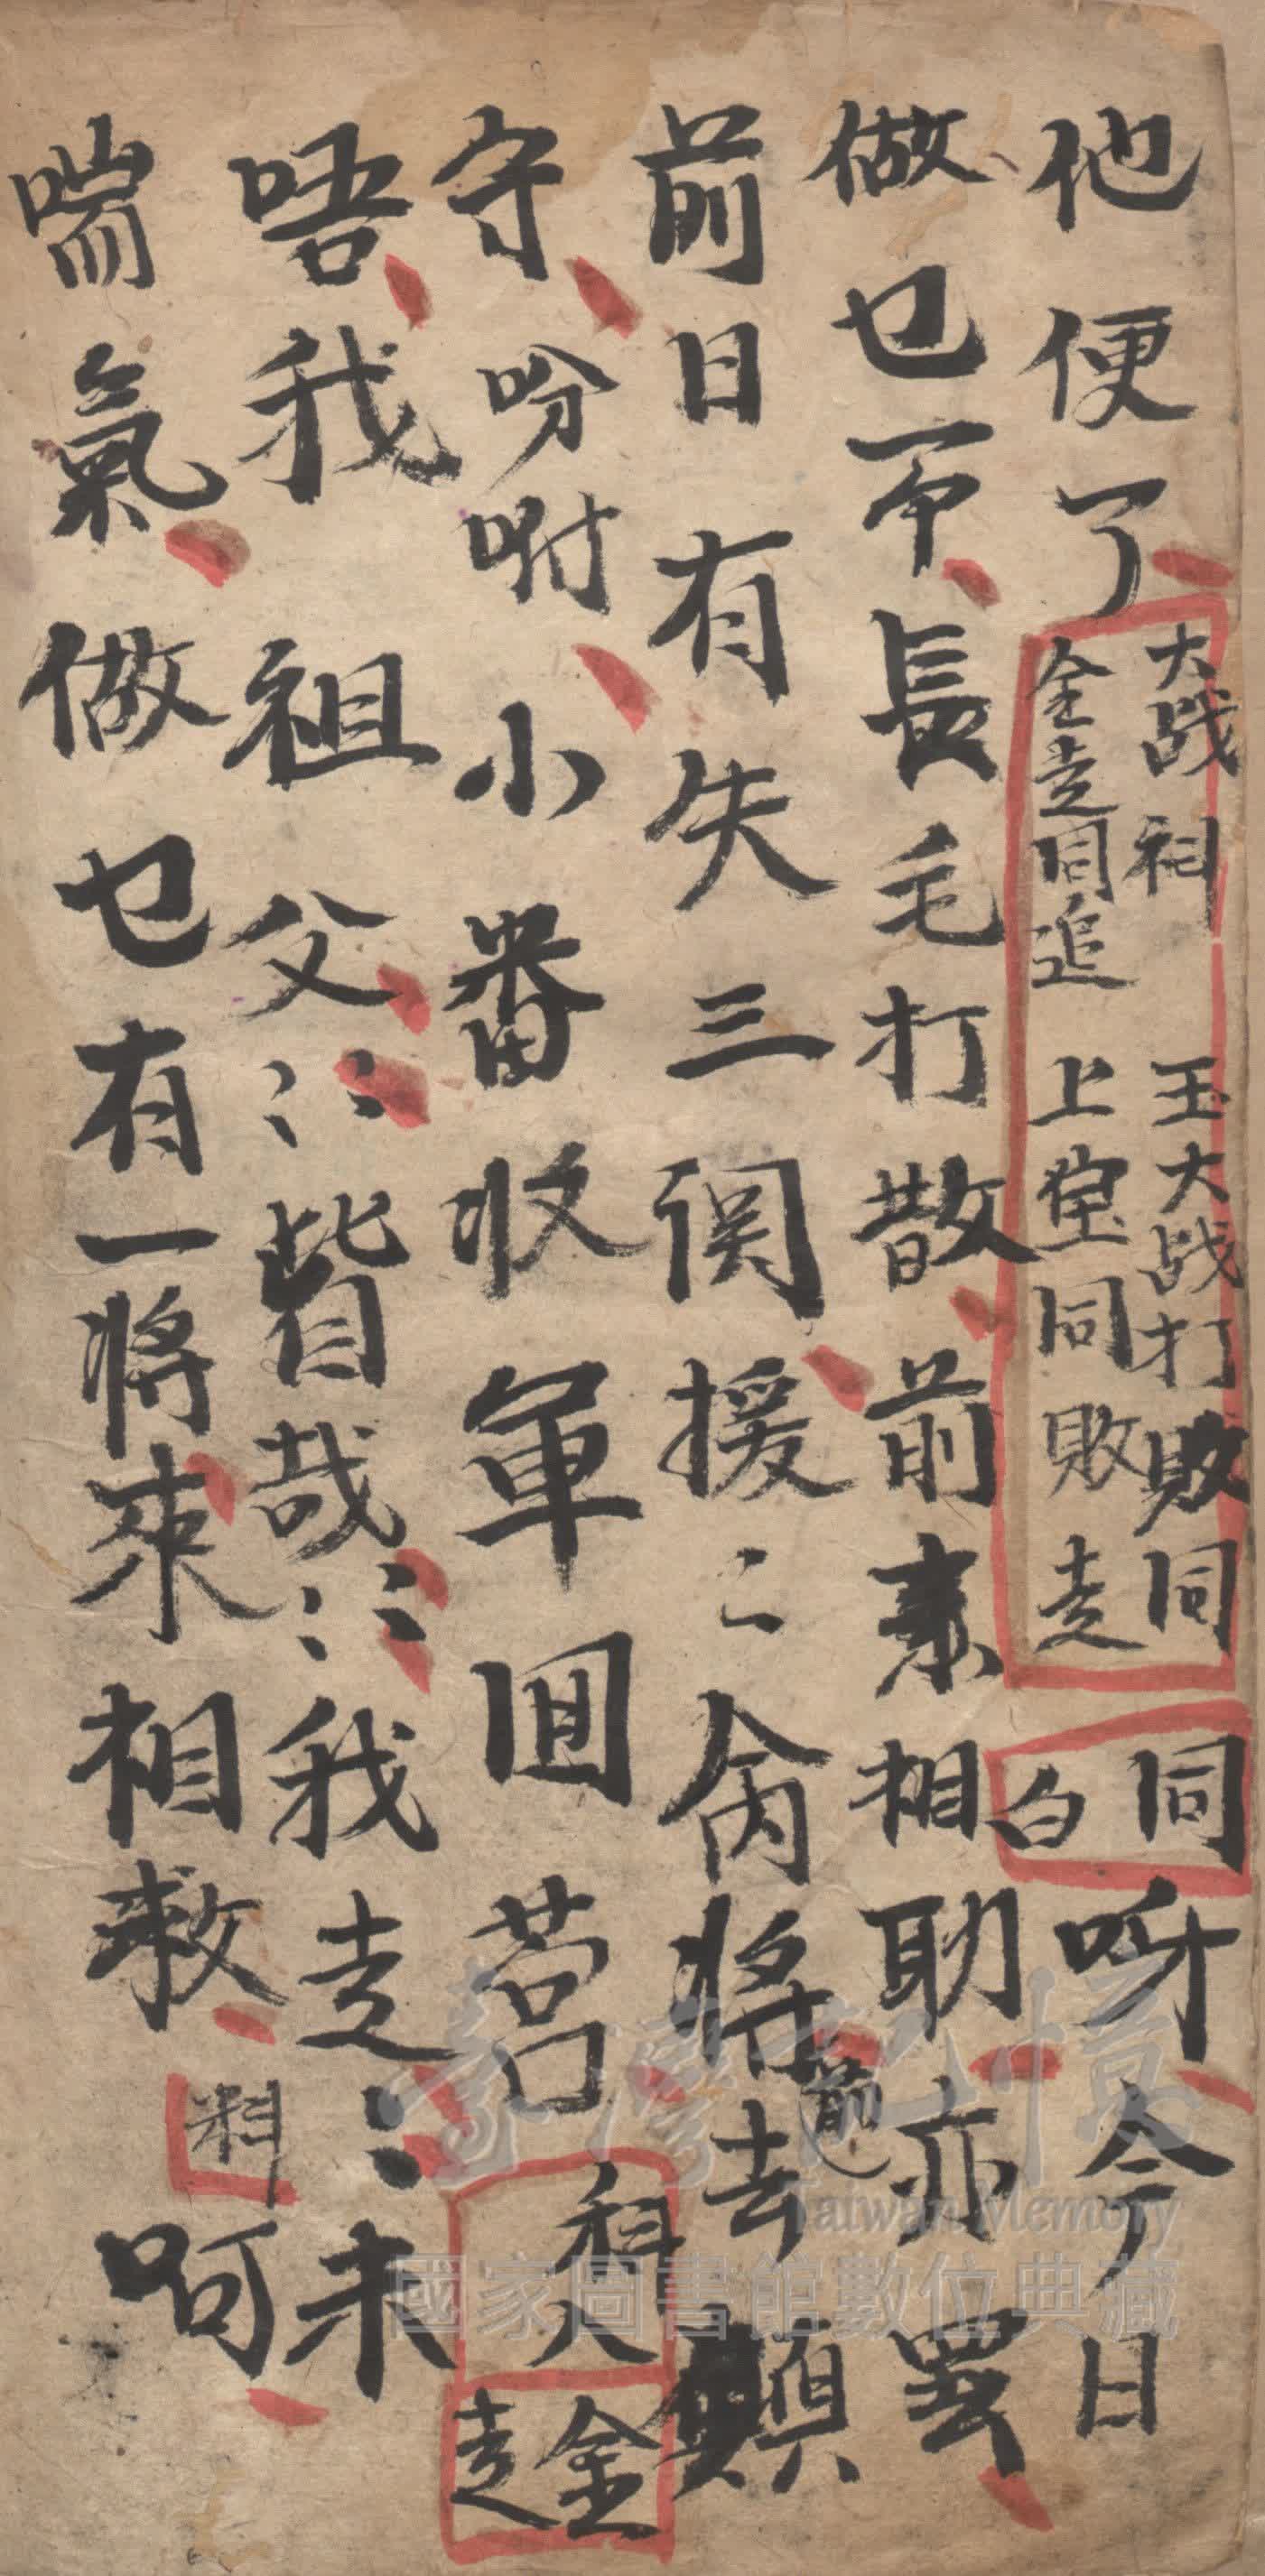 他便了大战祖 玉大战打敗同
全走同追 上 同敗走
同白 呀今日
做乜不長毛打散前來相助亦罢
前日有失三関援〻 將前去
守吩咐小番收軍回营 科人 全走
唔我祖父〻〻皆哉〻〻我走〻未
喘氣做乜有一將來相救 科 呵
臺灣記憶
Taiwan Memory
國家圖書館數位典藏